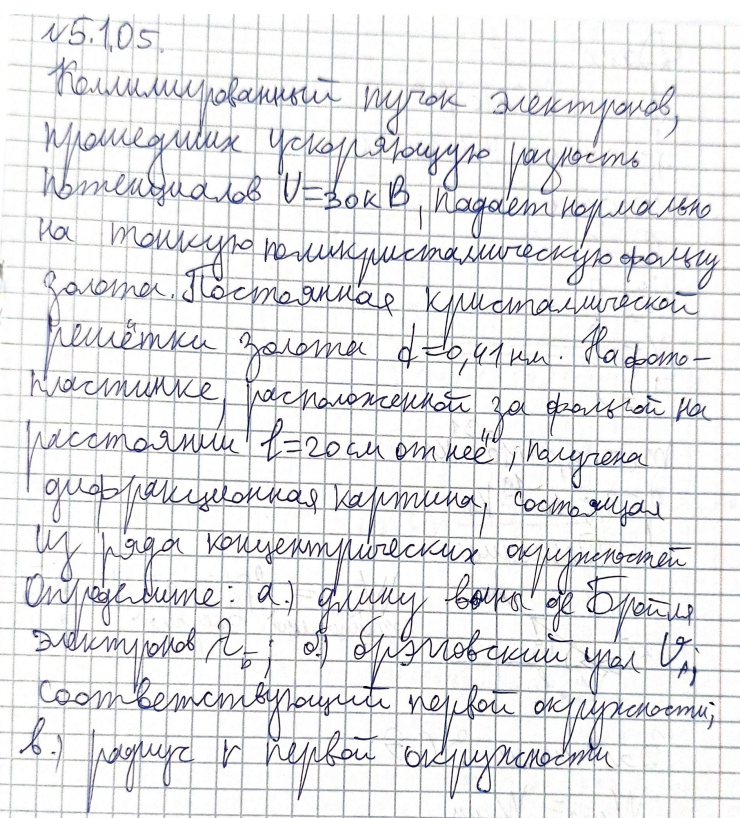 №5.1.05.
Коллимированный пучок электронов,
прошедших ускоряющую разность
потенциалов U=30кВ, падает нормально
на тонкую поликристаллическую фольгу
золота. Постоянная кристаллической
решётки золота d=0,41 нм. На фото-
пластинке, расположенной за фольгой на
расстоянии l=20см от неё", получена
дифракционная картина, состоящая
из ряда концентрических окружностей
Определите: а.) длину волны де Бройля
электронов λБ; б.) брэгговский угол
соответствующий первой окружности;
в.) радиус r первой окружности